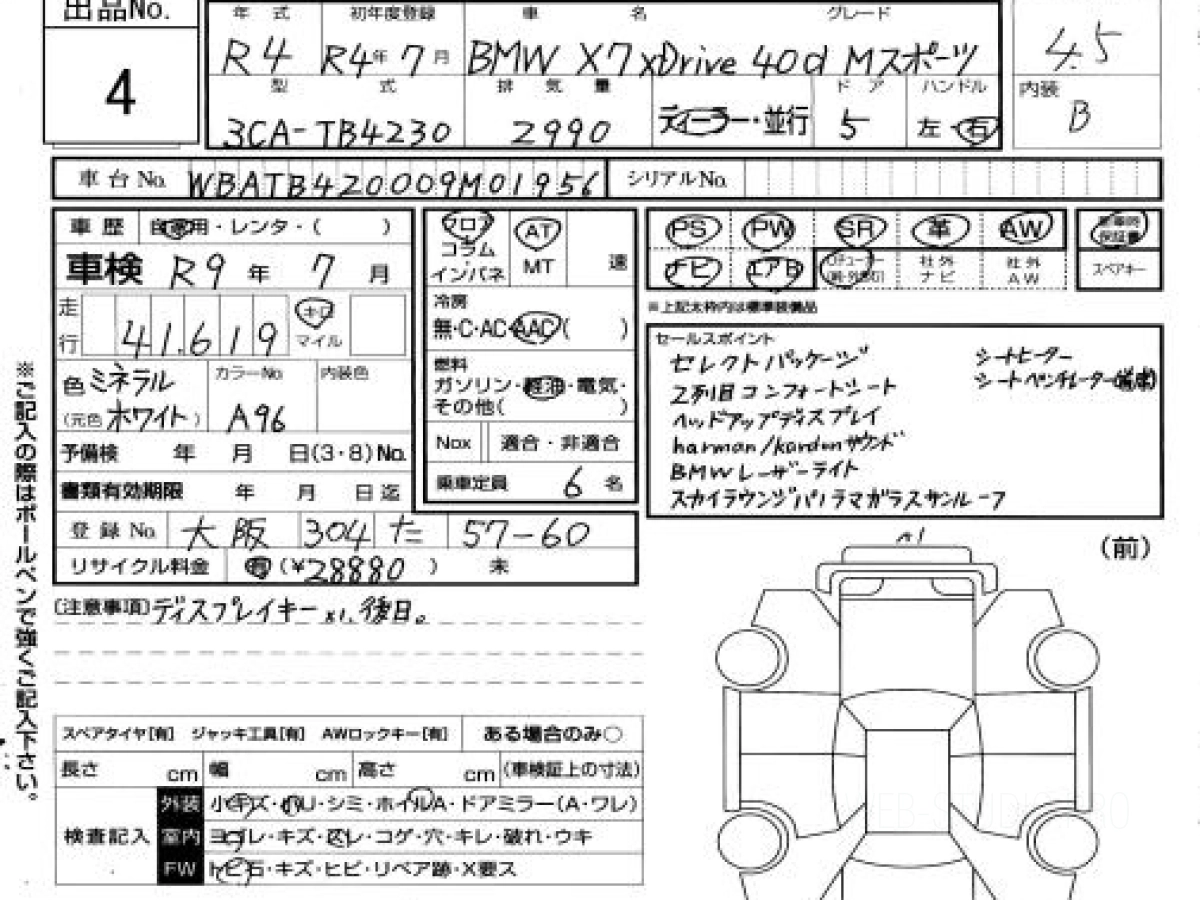 出品No.
4
年 式 初年度登録 車 名 グレード
R4 R4年7月 BMW X7 xDrive 40d Mスポーツ
4.5
型 式 排 気 量 ド ア ハンドル
3CA-TB4230 2990 ディーラー・並行 5 左・右
内装
B
車台No. WBATB420009M01956 シリアルNo.
車歴 自家用・レンタ・( )
車検 R9年 7月
走行 41,619 キロ マイル
色 ミネラル カラーNo 内装色
(元色 ホワイト) A96
予備検 年 月 日(3・8)No.
書類有効期限 年 月 日迄
登録No. 大阪 304 た 57-60
リサイクル料金 有(¥28880) 未
フロア
コラム
・インパネ
AT
MT
速
冷房
無・C・AC・AAC( )
燃料
ガソリン・軽油・電気・
その他( )
Nox 適合・非適合
乗車定員 6 名
PS PW SR 革 AW 保証書
ナビ エアB 社外ナビ 社外AW スペアキー
※上記太枠内は標準装備品
セールスポイント
セレクトパッケージ
2列目コンフォートシート
ヘッドアップディスプレイ
harman/kardonサウンド
BMWレーザーライト
スカイラウンジパノラマガラスサンルーフ
シートヒーター
シートベンチレーター
[注意事項]ディスプレイキーx1、後日。
(前)
スペアタイヤ[有] ジャッキ工具[有] AWロックキー[有] ある場合のみ○
長さ cm 幅 cm 高さ cm (車検証上の寸法)
検査記入
外装 小キズ・小U・シミ・ホイルA・ドアミラー(A・ワレ)
室内 ヨゴレ・キズ・スレ・コゲ・穴・キレ・破れ・ウキ
FW トビ石・キズ・ヒビ・リペア跡・X要ス
※ご記入の際はボールペンで強くご記入下さい。